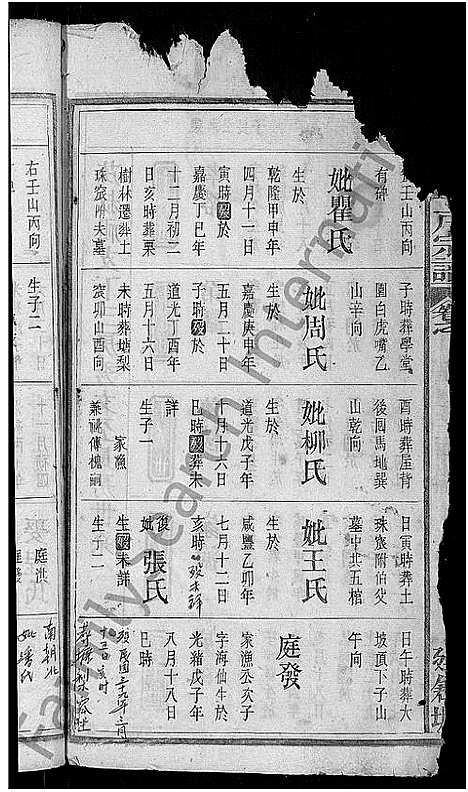 壬山丙向
有碑
妣瞿氏
生於
乾隆甲申年
四月十一日
寅時殁於
嘉慶丁巳年
十二月初二
日亥時葬栗
樹林還葬土
珠窽附夫墓
右壬山丙向
子時葬學堂
園白虎嘴乙
山辛向
妣周氏
生於
嘉慶庚申年
五月二十日
子時殁於
道光丁酉年
五月十六日
未時葬塘梨
窽卯山酉向
生子二
酉時葬屋背
後圓馬地巽
山乾向
妣柳氏
生於
道光戊子年
十月十六日
巳時殁葬未
詳
生子一
家漁
兼祧傅槐嗣
日寅時葬土
珠窽附伯父
墓中共五棺
妣王氏
生於
咸豐乙卯年
七月十二日
亥時殁未詳
復
妣張氏
生殁未詳
生子二
庭洪
庭發
日午時葬大
坡頂下子山
午向
庭發
家漁丞次子
字海仙生於
光緒戊子年
八月十八日
巳時
殁民國三十九年二月
十三日亥時
南朝北
Family Search International